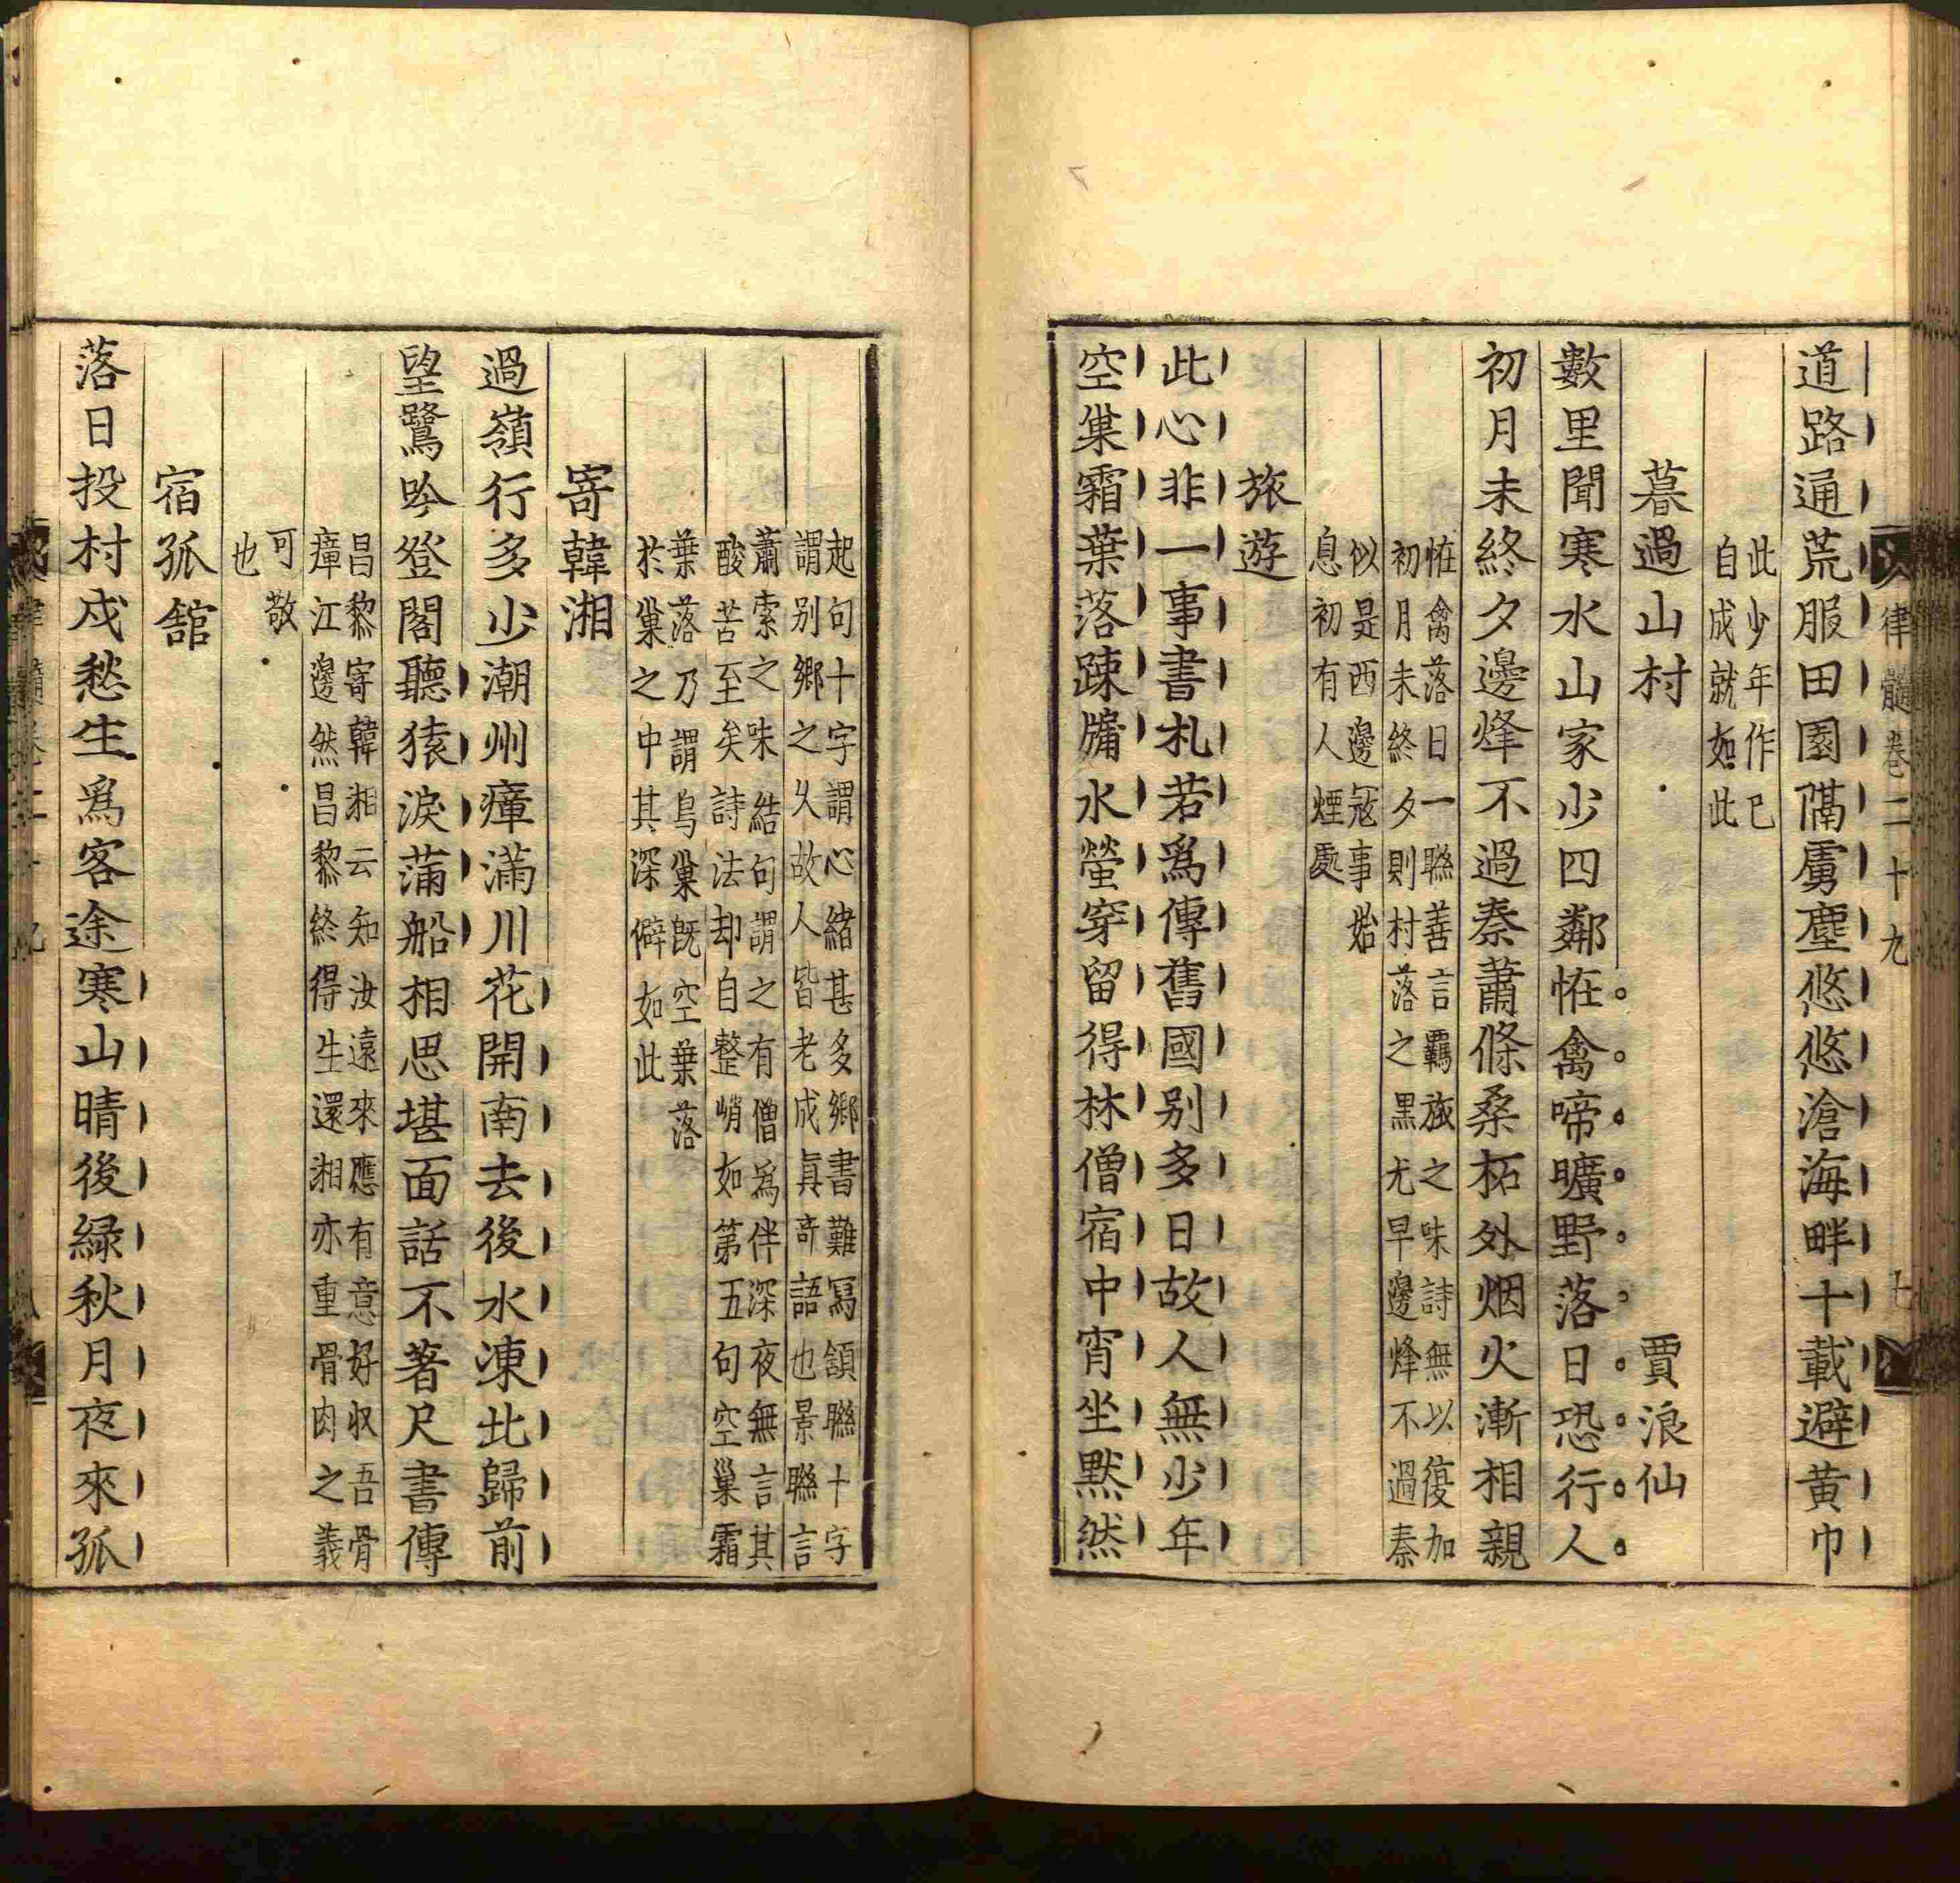 律髓卷二十九
七
道路通荒服田園隔虜塵悠悠滄海畔十載避黄巾
此少年作已
自成就如此
暮過山村
賈浪仙
數里聞寒水山家少四鄰恠禽啼曠野落日恐行人
初月未終夕邊烽不過秦蕭條桑柘外烟火漸相親
恠禽落日一聯善言羈旅之味詩無以復加
初月未終夕則村落之黑尤早邊烽不過秦
似是西邊冦事始
息初有人煙處
旅遊
此心非一事書札若爲傳舊國别多日故人無少年
空巢霜葉落疎牖水螢穿留得林僧宿中宵坐默然
起句十字謂心緒甚多鄉書難冩頷聯十字
謂别鄉之乆故人皆老成眞竒語也景聯言
蕭索之味結句謂之有僧爲伴深夜無言其
酸苦至矣詩法却自整峭如第五句空巢霜
葉落乃謂鳥巢旣空葉落
於巢之中其深僻如此
寄韓湘
過嶺行多少潮州瘴滿川花開南去後水凍北歸前
望鷺吟登閣聽猿淚滿船相思堪面話不著尺書傳
昌黎寄韓湘云知汝遠來應有意好收吾骨
瘴江邊然昌黎終得生還湘亦重骨肉之義
可敬
也
宿孤館
落日投村戍愁生爲客途寒山晴後緑秋月夜來孤